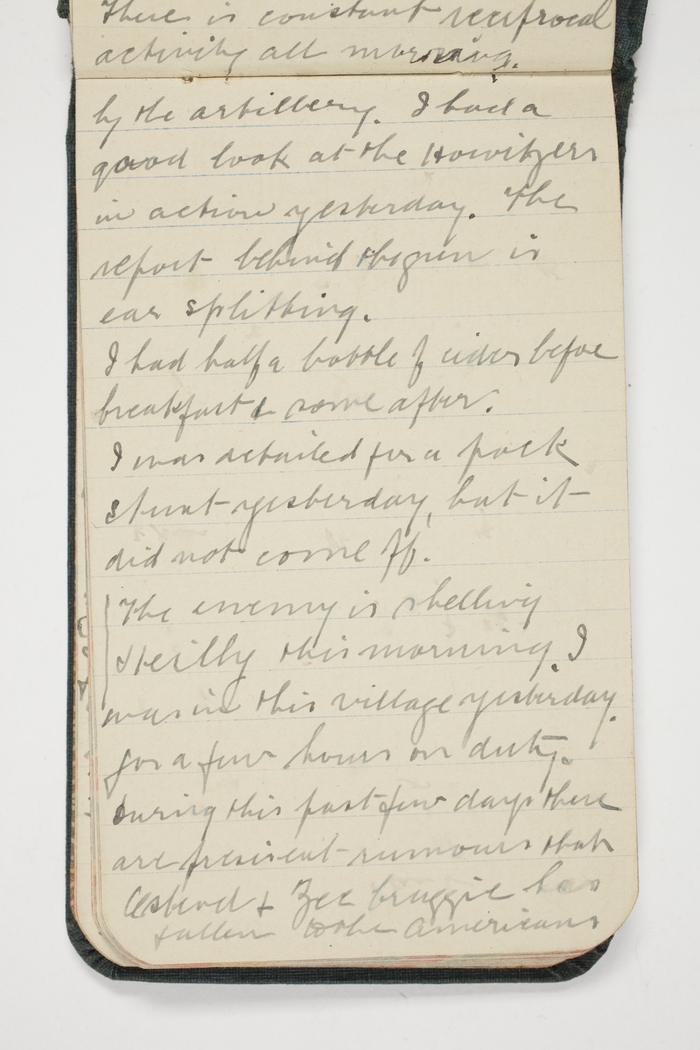 There is constant reciprocal
activity all morning.
by the artillery. I had a
good look at the Howitzers
in action yesterday. The
report behind the gun is
ear splitting.
I had half a bottle of cider before
breakfast & some after.
I was detailed for a pack
stunt yesterday, but it
did not come off.
The enemy is shelling
Heilly this morning. I
was in this village yesterday
for a few hours on duty.
During this past few days there
are rumours that
Ostend & Zee bruggie has
fallen to the Americans